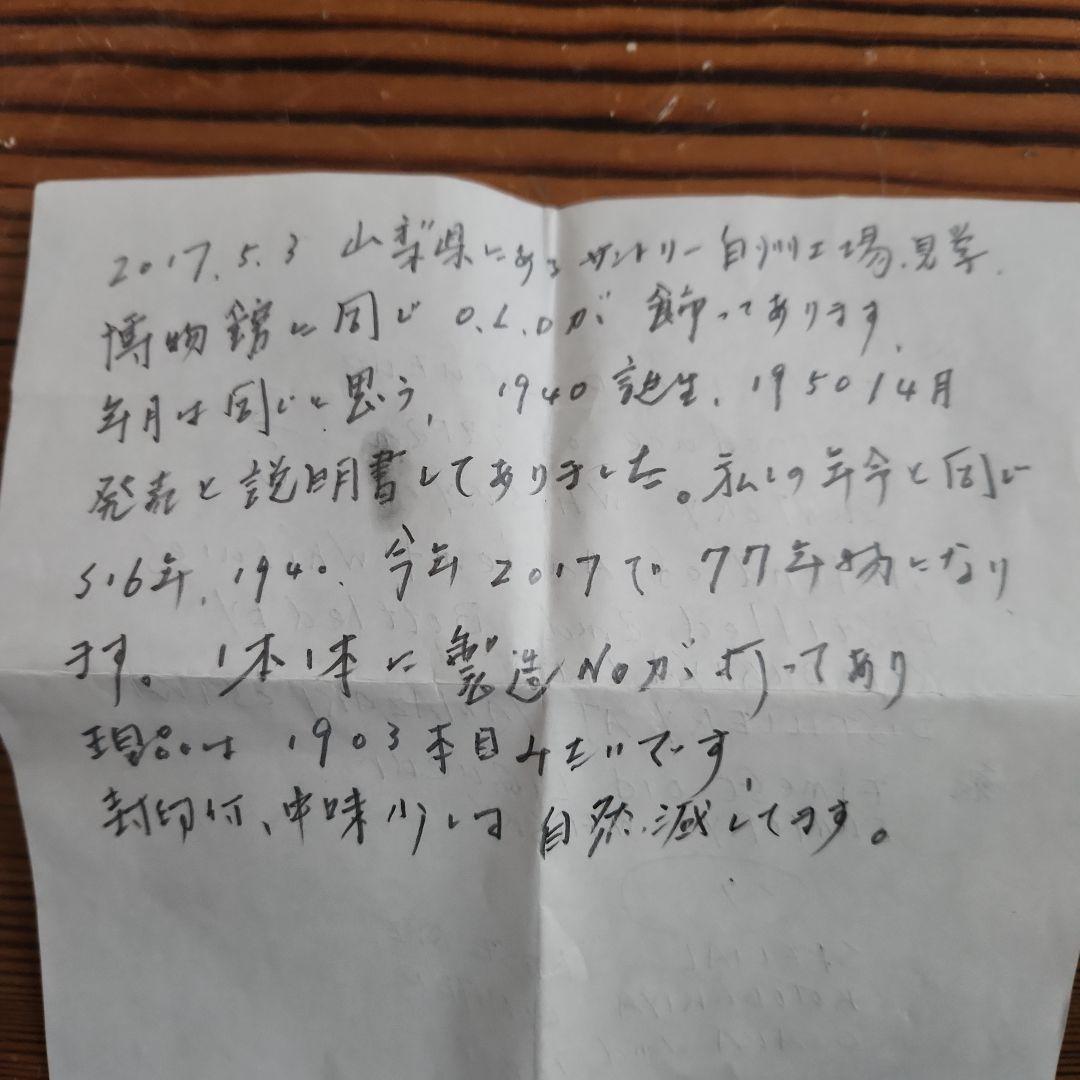 2017.5.3 山梨県にあるサントリー白州工場見学.
博物館に同じO.L.Dが飾ってあります.
年月は同じと思う, 1940誕生, 1950/4月
発表と説明書してありました。私しの年令と同じ
S16年, 1940. 今年2017で77年物になり
ます。1本1本に製造Noが打ってあり
現品は1903本目みたいです,
封印付、中味少しは自然減してます。